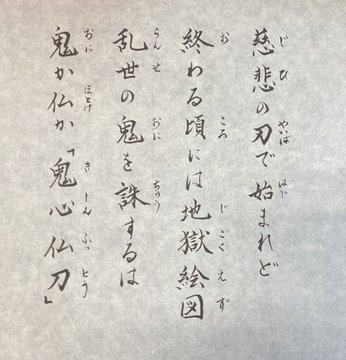 慈悲の刃で始まれど
終わる頃には地獄絵図
乱世の鬼を誅するは
鬼か仏か「鬼心仏刀」
じひ やいば はじ
お ころ じごくえず
らんせ おに ちゅう
おに ほとけ きしんぶっとう